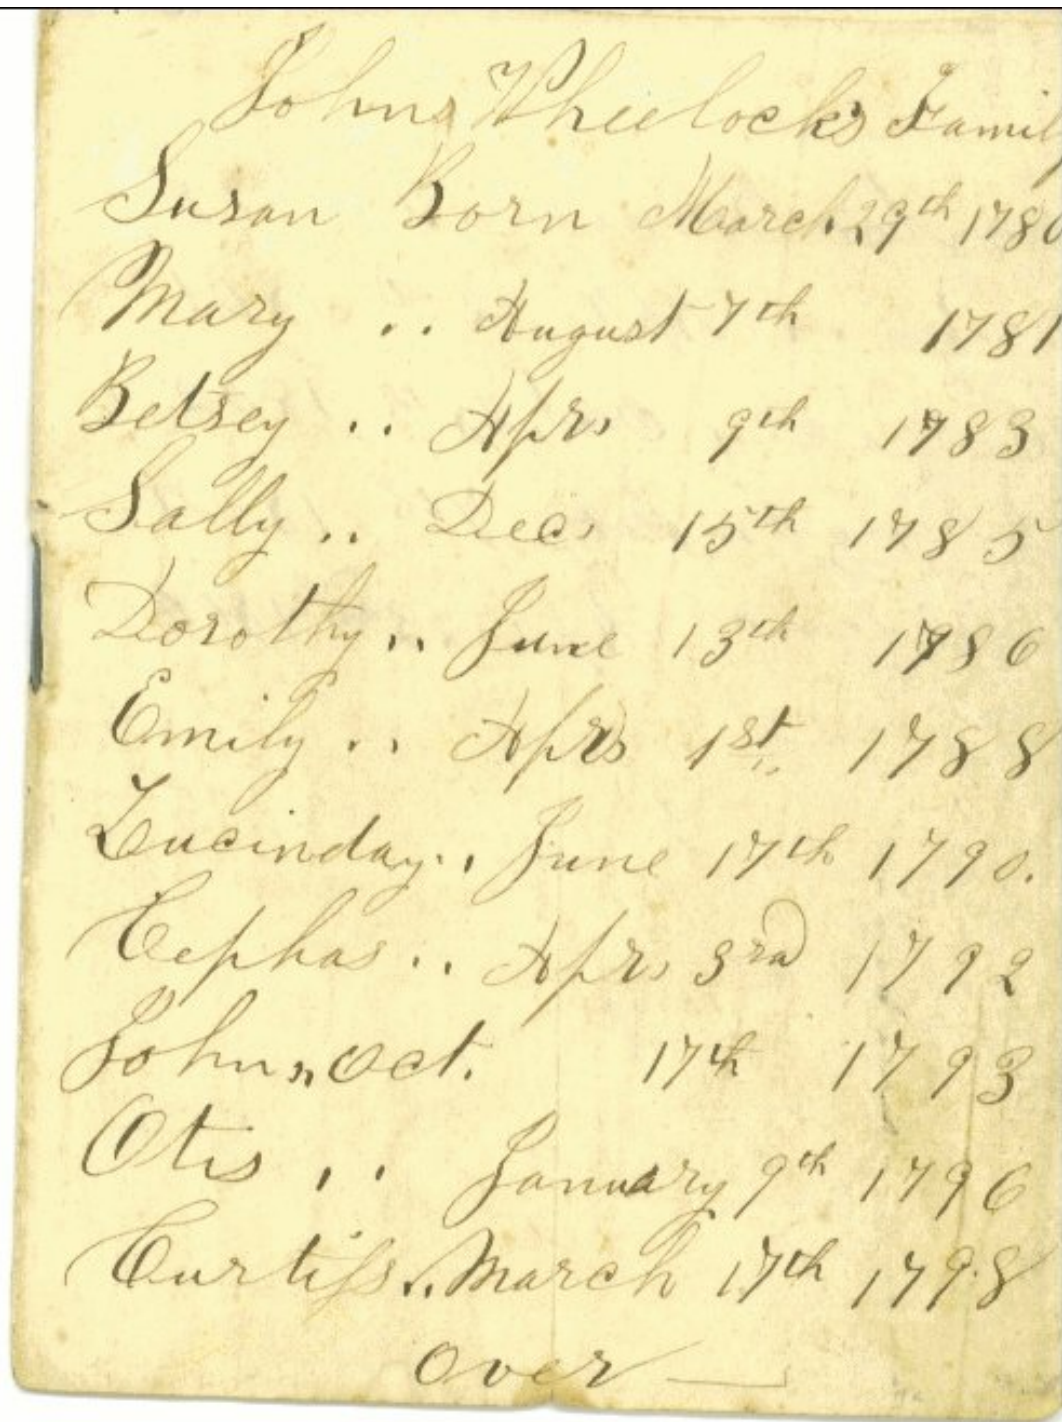 Johns Wheelocks Famil
Susan Born March 29th 1780
Mary .. August 7th 1781
Betsey .. Apr. 9th 1783
Sally .. Dec. 15th 1785
Dorothy .. June 13th 1786
Emily .. Apr. 1st 1788
Lucinday .. June 17th 1790.
Cephas .. Apr. 3rd 1792
John „ Oct. 17th 1793
Otis .. January 9th 1796
Curtiss .. March 17th 1798
Over —